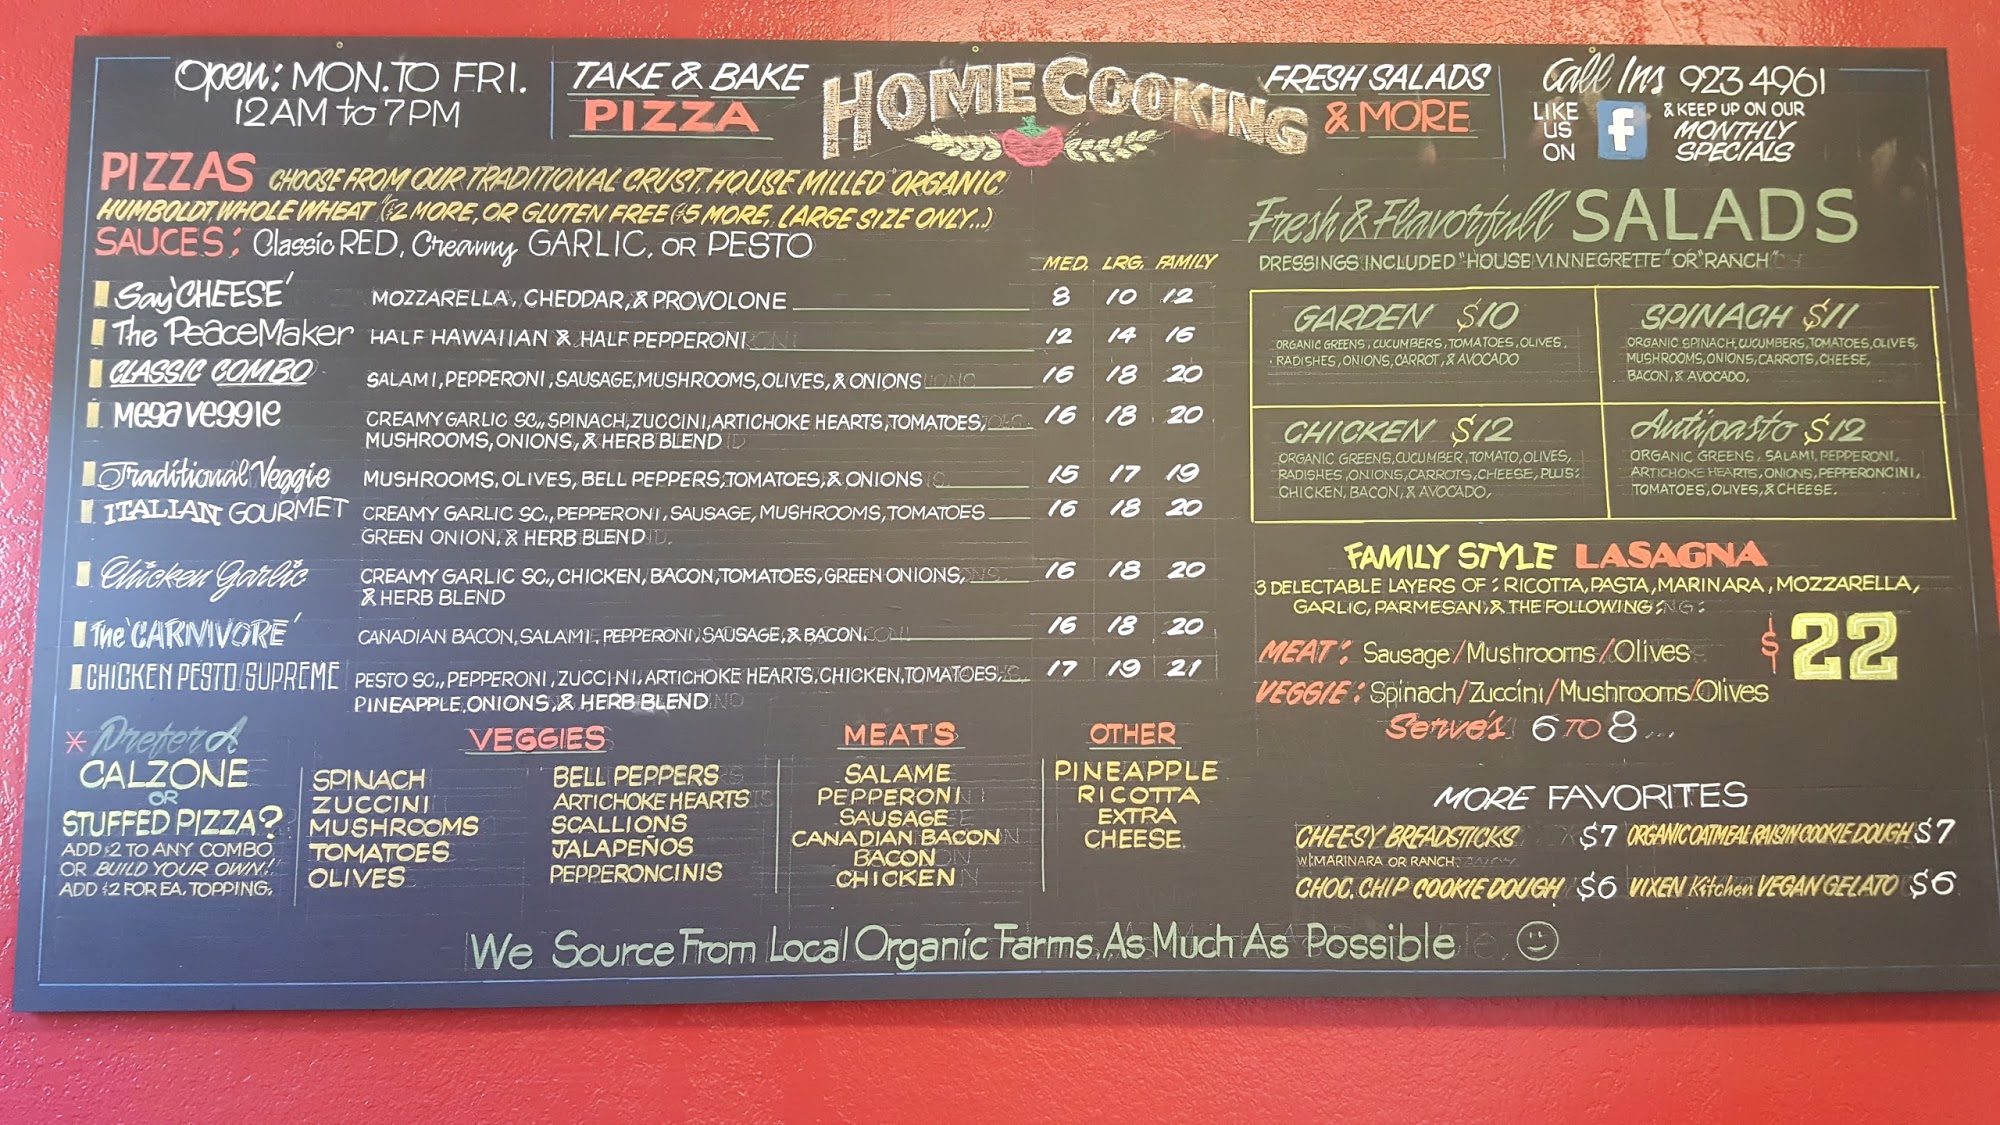 Open: MON. TO FRI.
12AM to 7PM
TAKE & BAKE
PIZZA
HOME COOKING
FRESH SALADS
& MORE
Call Ins 923 4961
LIKE
US
ON
f
& KEEP UP ON OUR
MONTHLY
SPECIALS
PIZZAS CHOOSE FROM OUR TRADITIONAL CRUST, HOUSE MILLED "ORGANIC
HUMBOLDT WHOLE WHEAT" ($2 MORE, OR GLUTEN FREE ($5 MORE, LARGE SIZE ONLY...)
SAUCES: Classic RED, Creamy GARLIC, OR PESTO
MED. LRG. FAMILY
Say 'CHEESE' MOZZARELLA, CHEDDAR, & PROVOLONE 8 10 12
The PeaceMaker HALF HAWAIIAN & HALF PEPPERONI 12 14 16
CLASSIC COMBO SALAMI, PEPPERONI, SAUSAGE, MUSHROOMS, OLIVES, & ONIONS 16 18 20
Mega Veggie CREAMY GARLIC SC., SPINACH, ZUCCINI, ARTICHOKE HEARTS, TOMATOES, 16 18 20
MUSHROOMS, ONIONS, & HERB BLEND
Traditional Veggie MUSHROOMS, OLIVES, BELL PEPPERS, TOMATOES, & ONIONS 15 17 19
ITALIAN GOURMET CREAMY GARLIC SC., PEPPERONI, SAUSAGE, MUSHROOMS, TOMATOES 16 18 20
GREEN ONION, & HERB BLEND
Chicken Garlic CREAMY GARLIC SC., CHICKEN, BACON, TOMATOES, GREEN ONIONS, 16 18 20
& HERB BLEND
The 'CARNIVORE' CANADIAN BACON, SALAMI, PEPPERONI, SAUSAGE, & BACON. 16 18 20
CHICKEN PESTO SUPREME PESTO SC., PEPPERONI, ZUCCINI, ARTICHOKE HEARTS, CHICKEN, TOMATOES, 17 19 21
PINEAPPLE, ONIONS, & HERB BLEND
* Prefer A
CALZONE
OR
STUFFED PIZZA?
ADD $2 TO ANY COMBO
OR BUILD YOUR OWN!
ADD $2 FOR EA. TOPPING.
VEGGIES
SPINACH
ZUCCINI
MUSHROOMS
TOMATOES
OLIVES
BELL PEPPERS
ARTICHOKE HEARTS
SCALLIONS
JALAPEÑOS
PEPPERONCINIS
MEATS
SALAME
PEPPERONI
SAUSAGE
CANADIAN BACON
BACON
CHICKEN
OTHER
PINEAPPLE
RICOTTA
EXTRA
CHEESE
Fresh & Flavorfull SALADS
DRESSINGS INCLUDED "HOUSE VINNEGRETTE" OR "RANCH"
GARDEN $10
ORGANIC GREENS, CUCUMBERS, TOMATOES, OLIVES,
RADISHES, ONIONS, CARROT, & AVOCADO
SPINACH $11
ORGANIC SPINACH, CUCUMBERS, TOMATOES, OLIVES,
MUSHROOMS, ONIONS, CARROTS, CHEESE,
BACON, & AVOCADO.
CHICKEN $12
ORGANIC GREENS, CUCUMBER, TOMATO, OLIVES,
RADISHES, ONIONS, CARROTS, CHEESE, PLUS:
CHICKEN, BACON, & AVOCADO,
Antipasto $12
ORGANIC GREENS, SALAMI, PEPPERONI,
ARTICHOKE HEARTS, ONIONS, PEPPERONCINI,
TOMATOES, OLIVES, & CHEESE.
FAMILY STYLE LASAGNA
3 DELECTABLE LAYERS OF: RICOTTA, PASTA, MARINARA, MOZZARELLA,
GARLIC, PARMESAN, & THE FOLLOWING:
MEAT: Sausage/Mushrooms/Olives
VEGGIE: Spinach/Zuccini/Mushrooms/Olives
$22
Serve's 6 TO 8...
MORE FAVORITES
CHEESY BREADSTICKS $7
W/MARINARA OR RANCH.
CHOC. CHIP COOKIE DOUGH $6
ORGANIC OATMEAL RAISIN COOKIE DOUGH $7
VIXEN Kitchen VEGAN GELATO $6
We Source From Local Organic Farms, As Much As Possible